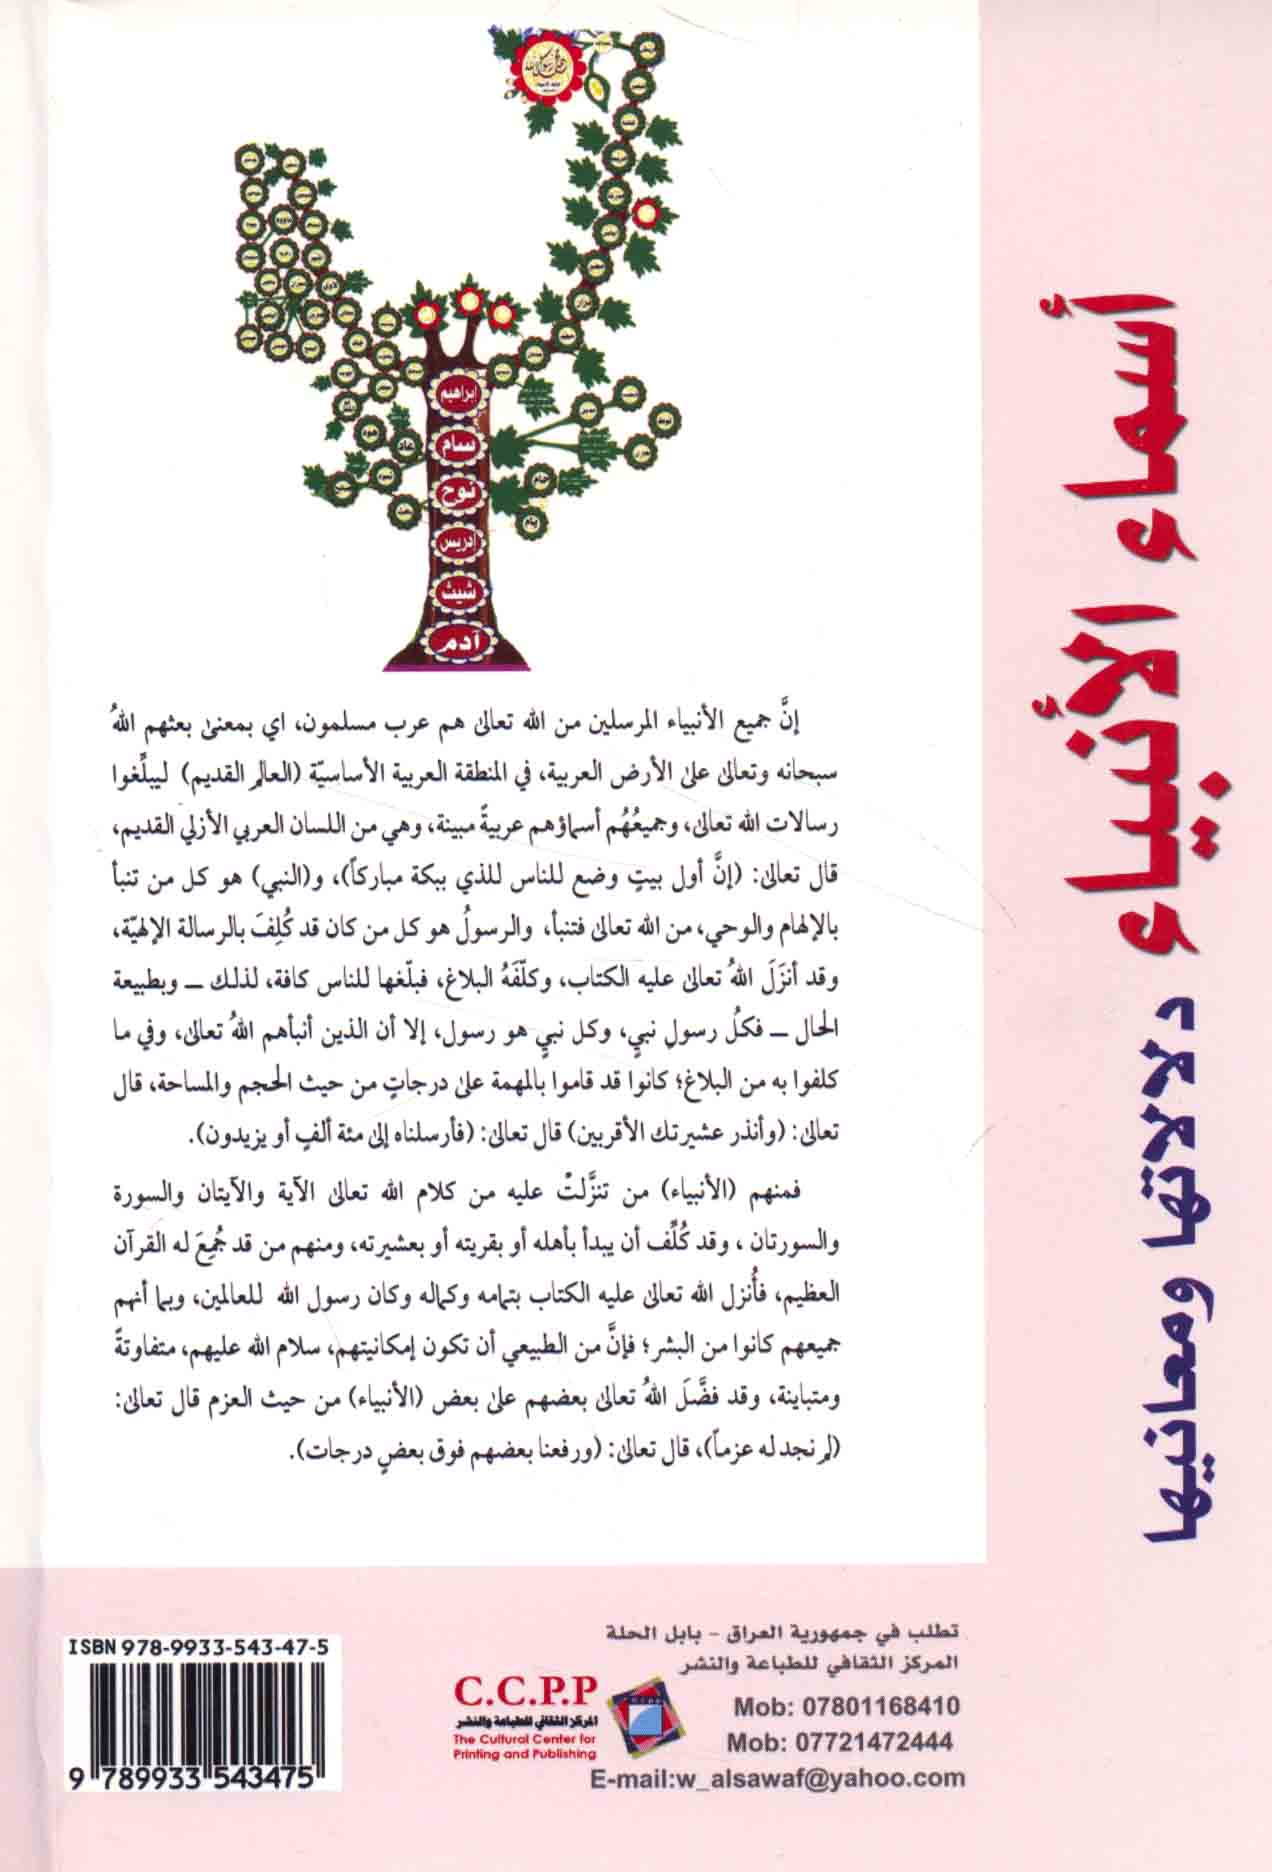 أسماء الأنبياء دلالاتها ومعانيها
إبراهيم
سام
نوح
إدريس
شيث
آدم
هود
عاد
لوط
حام
إنَّ جميع الأنبياء المرسلين من الله تعالى هم عرب مسلمون، اي بمعنى بعثهم اللهُ
سبحانه وتعالى على الأرض العربية، في المنطقة العربية الأساسيّة (العالم القديم) ليبلِّغوا
رسالات الله تعالى، وجميعُهُم أسماؤهم عربيةً مبينة، وهي من اللسان العربي الأزلي القديم،
قال تعالى: (إنَّ أول بيتٍ وضع للناس للذي ببكة مباركاً)، و(النبي) هو كل من تنبأ
بالإلهام والوحي، من الله تعالى فتنبأ، والرسولُ هو كل من كان قد كُلِفَ بالرسالة الإلهيّة،
وقد أنزَلَ اللهُ تعالى عليه الكتاب، وكلّفَهُ البلاغ، فبلّغها للناس كافة، لذلك ــ وبطبيعة
الحال ــ فكلُ رسولِ نبيٍ، وكل نبيٍ هو رسول، إلا أن الذين أنبأهم اللهُ تعالى، وفي ما
كلفوا به من البلاغ؛ كانوا قد قاموا بالمهمة على درجاتٍ من حيث الحجم والمساحة، قال
تعالى: (وأنذر عشيرتك الأقربين) قال تعالى: (فأرسلناه إلى مئة ألفٍ أو يزيدون).
فمنهم (الأنبياء) من تنزَّلتْ عليه من كلام الله تعالى الآية والآيتان والسورة
والسورتان ، وقد كُلِّف أن يبدأ بأهله أو بقريته أو بعشيرته، ومنهم من قد جُمِعَ له القرآن
العظيم، فأُنزل الله تعالى عليه الكتاب بتمامه وكماله وكان رسول الله للعالمين، وبما أنهم
جميعهم كانوا من البشر؛ فإنَّ من الطبيعي أن تكون إمكانيتهم، سلام الله عليهم، متفاوتةً
ومتباينة، وقد فضَّلَ اللهُ تعالى بعضهم على بعض (الأنبياء) من حيث العزم قال تعالى:
(لم نجد له عزماً)، قال تعالى: (ورفعنا بعضهم فوق بعضٍ درجات).
تطلب في جمهورية العراق - بابل الحلة
المركز الثقافي للطباعة والنشر
Mob: 07801168410
Mob: 07721472444
E-mail:w_alsawaf@yahoo.com
C.C.P.P
المركز الثقافي للطباعة والنشر
The Cultural Center for
Printing and Publishing
ISBN 978-9933-543-47-5
9 789933 543475